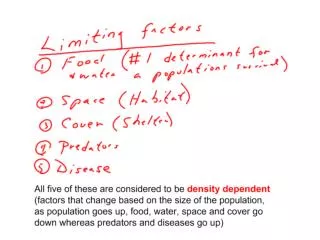 Limiting factors
① Food (#1 determinant for
& water a populations survival)
② Space (Habitat)
③ Cover (Shelter)
④ Predators
⑤ Disease
All five of these are considered to be density dependent
(factors that change based on the size of the population,
as population goes up, food, water, space and cover go
down whereas predators and diseases go up)